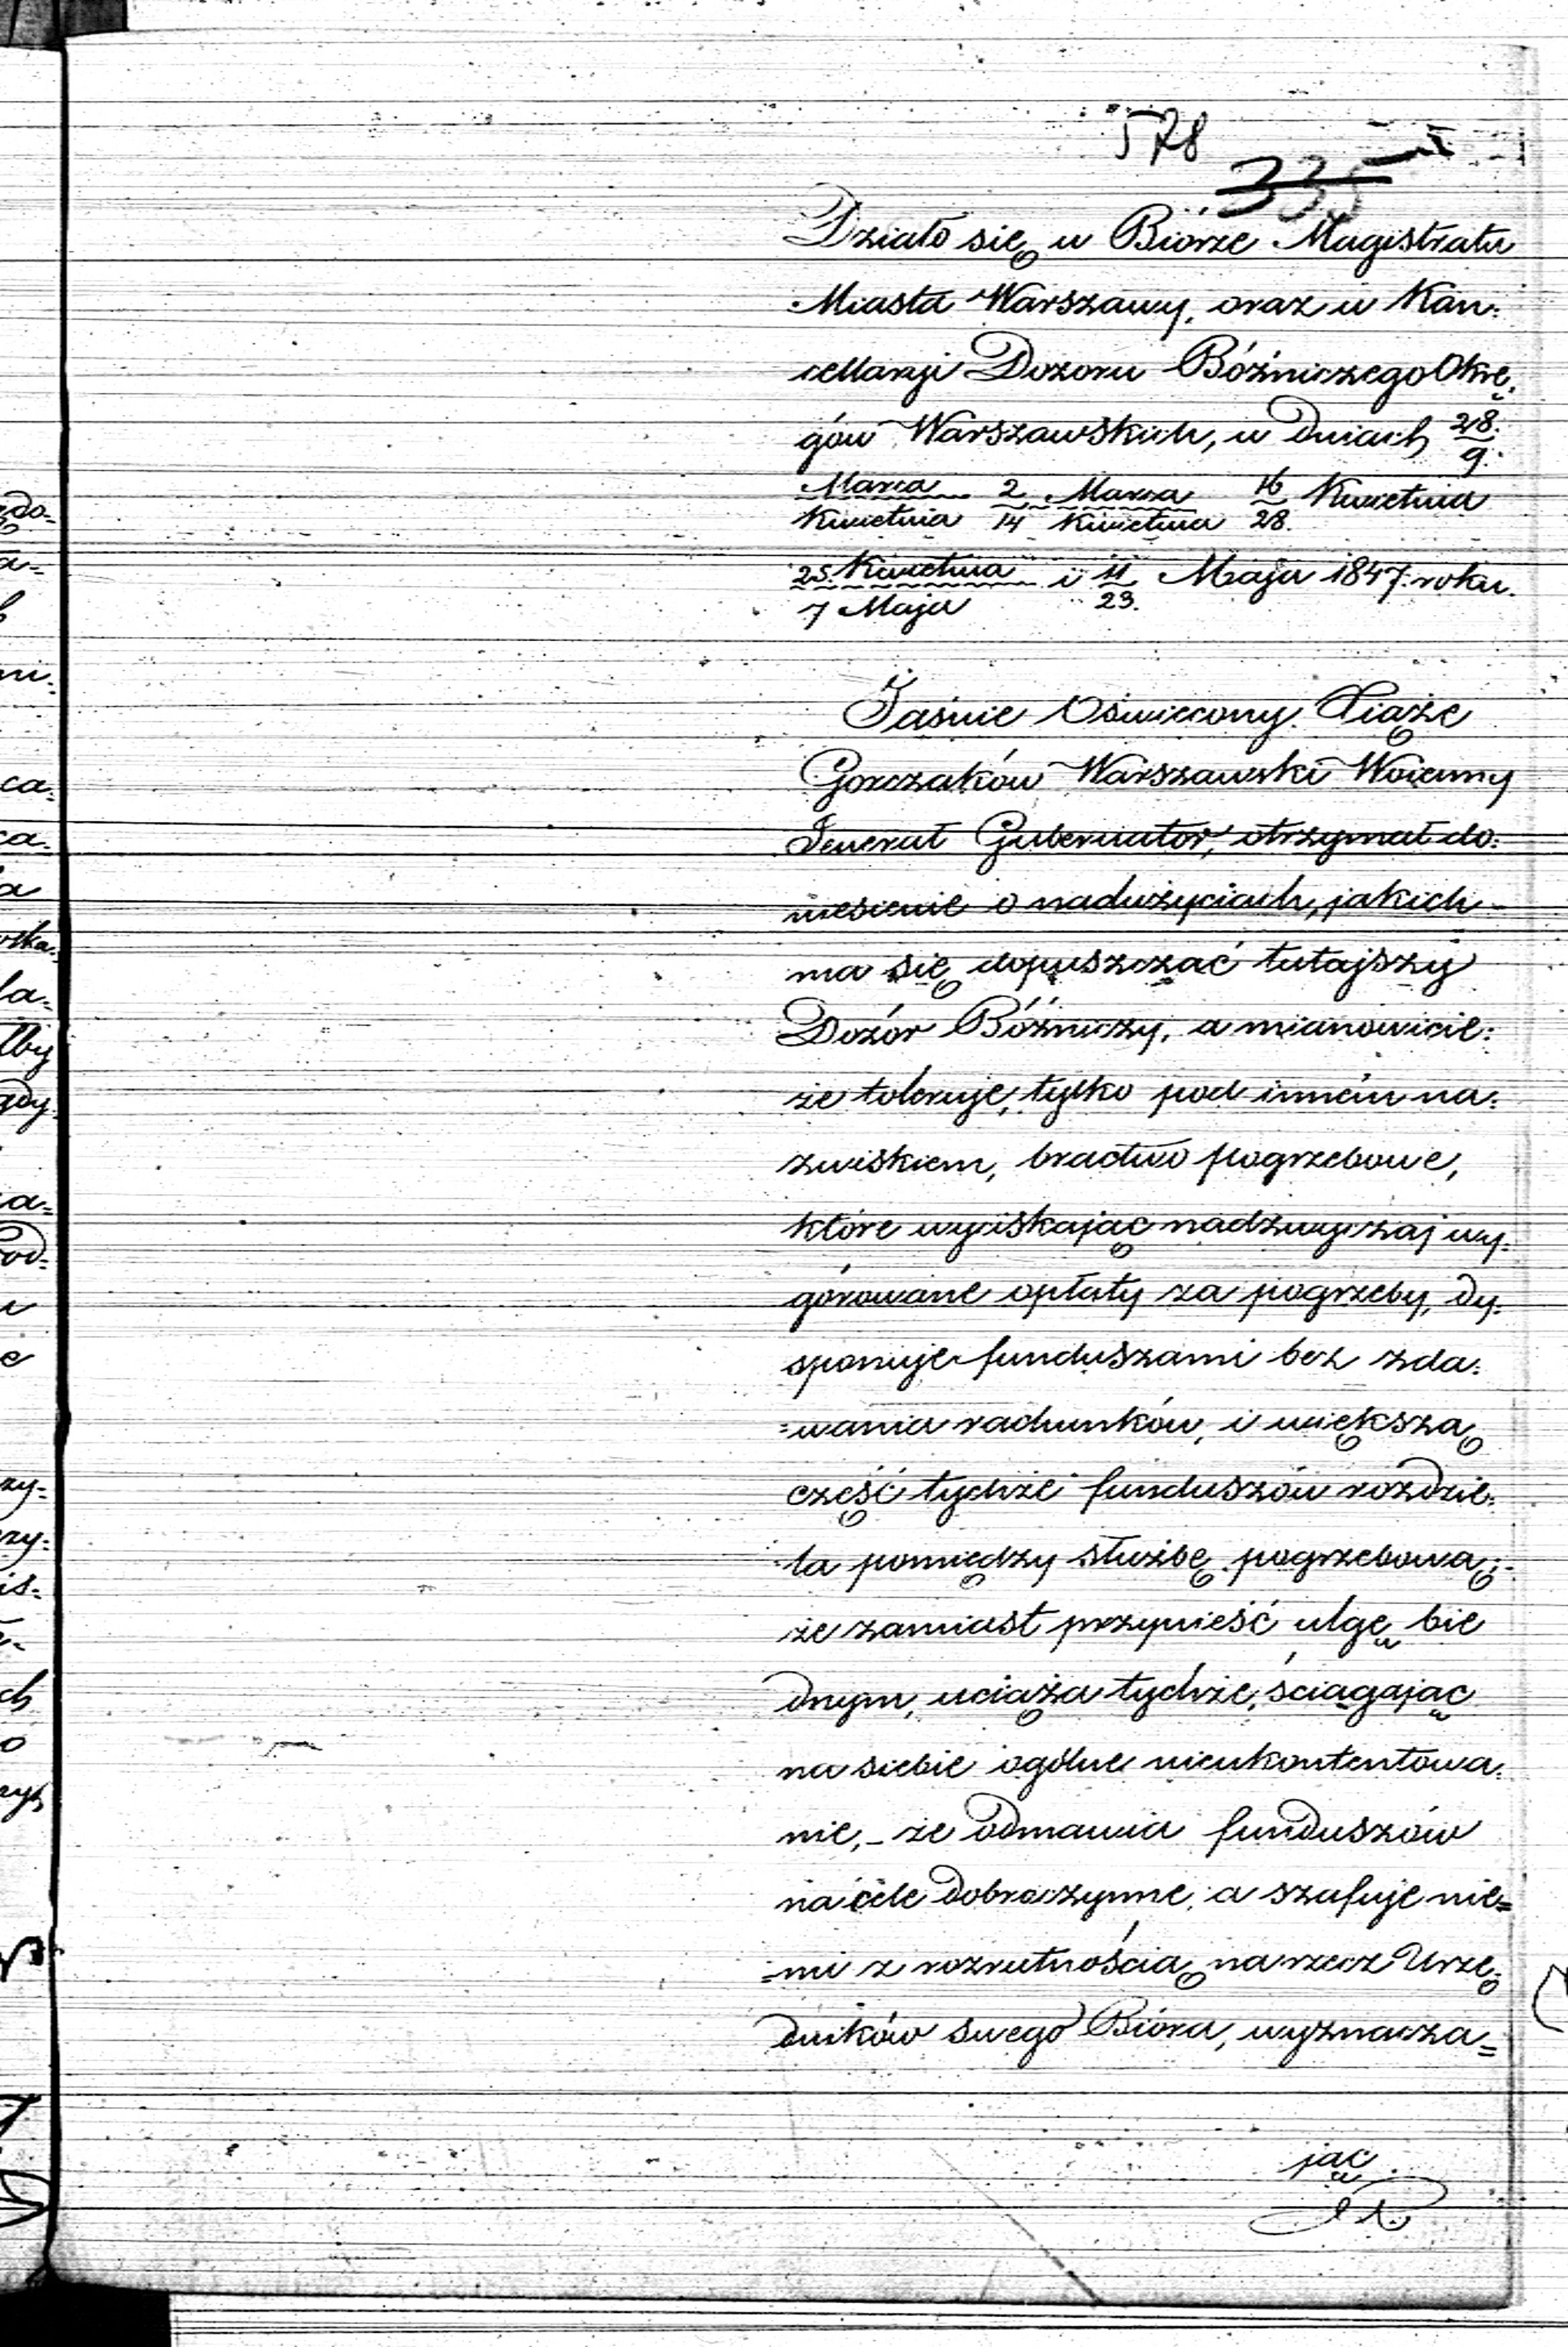 578
335
Działo się w Biórze Magistratu
Miasta Warszawy, oraz w Kan:
cellaryi Dozoru Bóźniczego Okrę:
gów Warszawskich, w Dniach 28./9.
Marca/Kwietnia 2/14 Marca/Kwietnia 16/28. Kwietnia
25 Kwietnia/7 Maja i 11/23. Maja 1847. roku.
Jaśnie Oświecony Xiąże
Gorczaków Warszawski Woienny
Jenerał Gubernator, otrzymał do:
niesienie o nadużyciach, jakich
ma się dopuszczać tutajszy
Dozór Bóźniczy, a mianowicie:
że toleruje, tylko pod inném na:
zwiskiem, bractwo pogrzebowe,
które wyciskając nadzwyczaj wy:
górowane opłaty za pogrzeby, dy:
sponuje funduszami bez zda:
=wania rachunków, i większą
część tychże funduszów rozdzie:
la pomiędzy służbę pogrzebową;
że zamiast przynieść ulgę bie
dnym, uciąża tychże, ściągając
na siebie ogólne nieukontentowa:
nie, – że odmawia funduszów
na cele dobroczynne, a szafuje nie=
=mi z rozrutnością na rzecz Urzę:
dników swego Bióra, wyznacza=
jąc